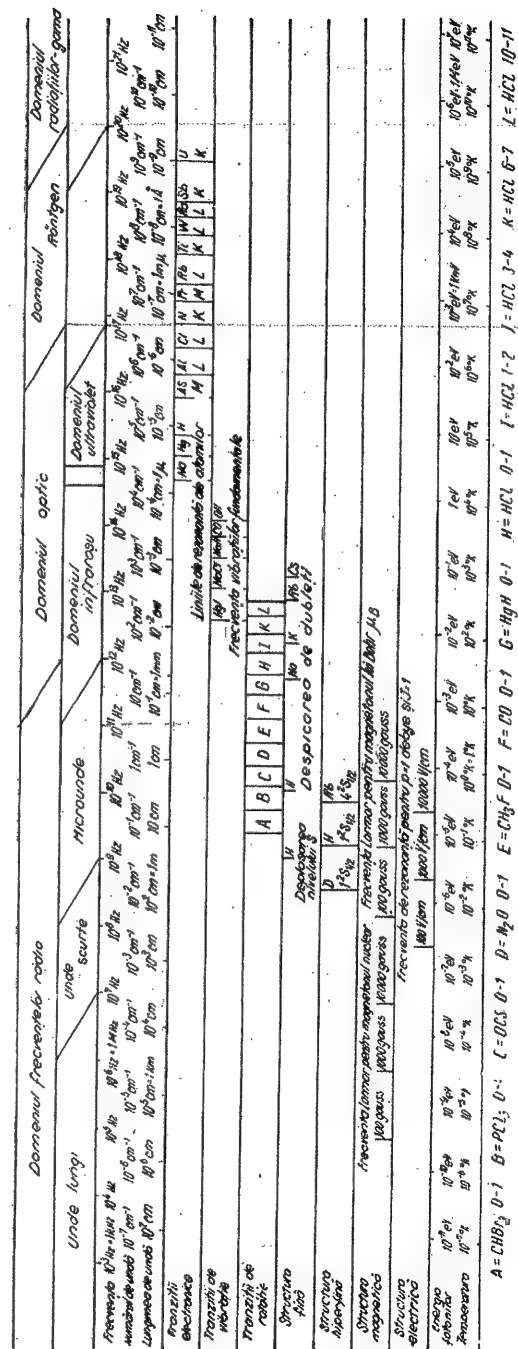 Domeniul frecvențelor radio
Domeniul optic
Domeniul Röntgen
Domeniul radiațiilor gama
Unde lungi
Unde scurte
Microunde
Domeniul infraroșu
Domeniul ultraviolet
Frecvența 10³Hz=1kHz 10⁴Hz 10⁵Hz 10⁶Hz=1MHz 10⁷Hz 10⁸Hz 10⁹Hz 10¹⁰Hz 10¹¹Hz 10¹²Hz 10¹³Hz 10¹⁴Hz 10¹⁵Hz 10¹⁶Hz 10¹⁷Hz 10¹⁸Hz 10¹⁹Hz 10²⁰Hz 10²¹Hz
Numărul de undă 10⁻⁷cm⁻¹ 10⁻⁶cm⁻¹ 10⁻⁵cm⁻¹ 10⁻⁴cm⁻¹ 10⁻³cm⁻¹ 10⁻²cm⁻¹ 10⁻¹cm⁻¹ 1cm⁻¹ 10cm⁻¹
Lungimea de undă 10⁷cm 10⁶cm 10⁵cm=1km 10⁴cm 10³cm 10²cm=1m 10cm 1cm 10⁻¹cm=1mm 10⁻²cm 10⁻³cm 10⁻⁴cm=1μ 10⁻⁵cm 10⁻⁶cm 10⁻⁷cm=1mμ 10⁻⁸cm=1Å 10⁻⁹cm 10⁻¹⁰cm 10⁻¹¹cm
Tranziții electronice
Na Hg H AS Al Cl N Pr Rb Ti W Sb U
M L K M L K L L K K
Liniile de rezonanță ale atomilor
Tranziții de vibrație
HgI NaCl CO CH
Frecvența vibrațiilor fundamentale
Tranziții de rotație
A B C D E F G H I K L
Structura fină
H H Na K Rb CS
Deplasarea nivelului S
Despicarea de dubleți
Structura hiperfină
D H Rb
1²S₁/₂ 1²S₁/₂ 4²S₁/₂
Structura magnetică
Frecvența Larmor pentru magnetonul nuclear
100 gauss 1000 gauss 10000 gauss
Frecvența Larmor pentru magnetonul lui Bohr μB
100 gauss 1000 gauss 10000 gauss
Structura electrică
Frecvența de rezonanță pentru și J=1
100 V/cm 1000 V/cm 10000 V/cm
Energia fotonilor 10⁻¹¹eV 10⁻¹⁰eV 10⁻⁹eV 10⁻⁸eV 10⁻⁷eV 10⁻⁶eV 10⁻⁵eV 10⁻⁴eV 10⁻³eV 10⁻²eV 10⁻¹eV 1eV 10eV 10²eV 10³eV=1KeV 10⁴eV 10⁵eV 10⁶eV=1MeV 10⁷eV
Temperatura
A=CHBr₃ 0-1 B=PCl₃ 0-1 C=OCS 0-1 D=N₂O 0-1 E=CH₃F 0-1 F=CO 0-1 G=HgH 0-1 H=HCl 0-1 I=HCl 1-2 J=HCl 3-4 K=HCl 6-7 L=HCl 10-11